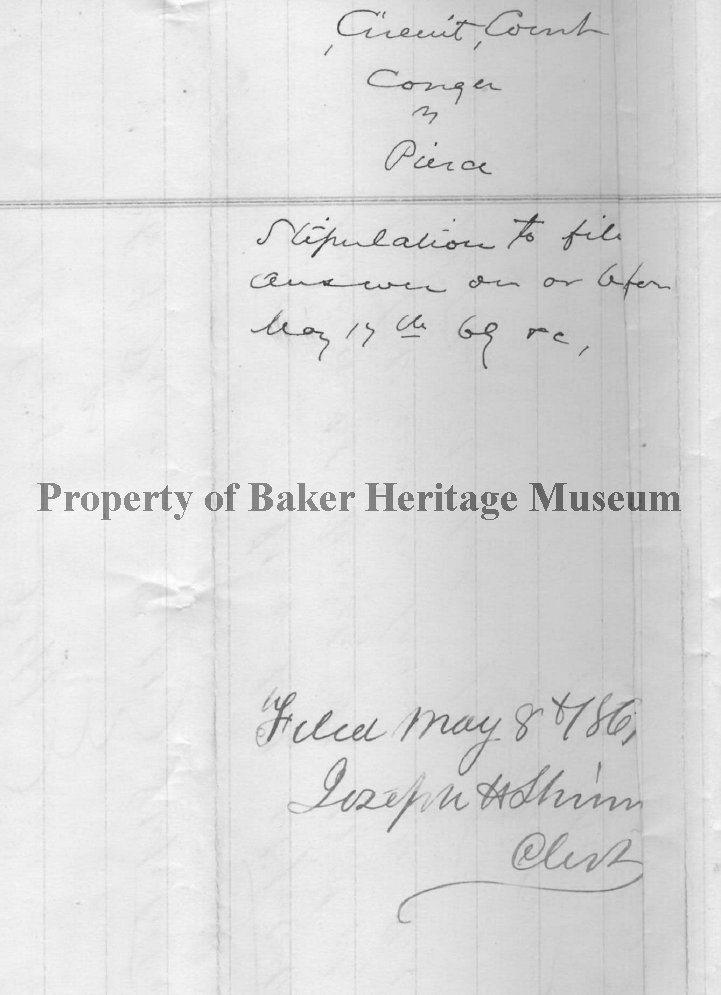 Circuit Court
Conger
vs
Pierce
Stipulation to file
answer on or before
May 17th 69 &c,
Property of Baker Heritage Museum
Filed May 8th 186
Joseph H Shinn
Clerk